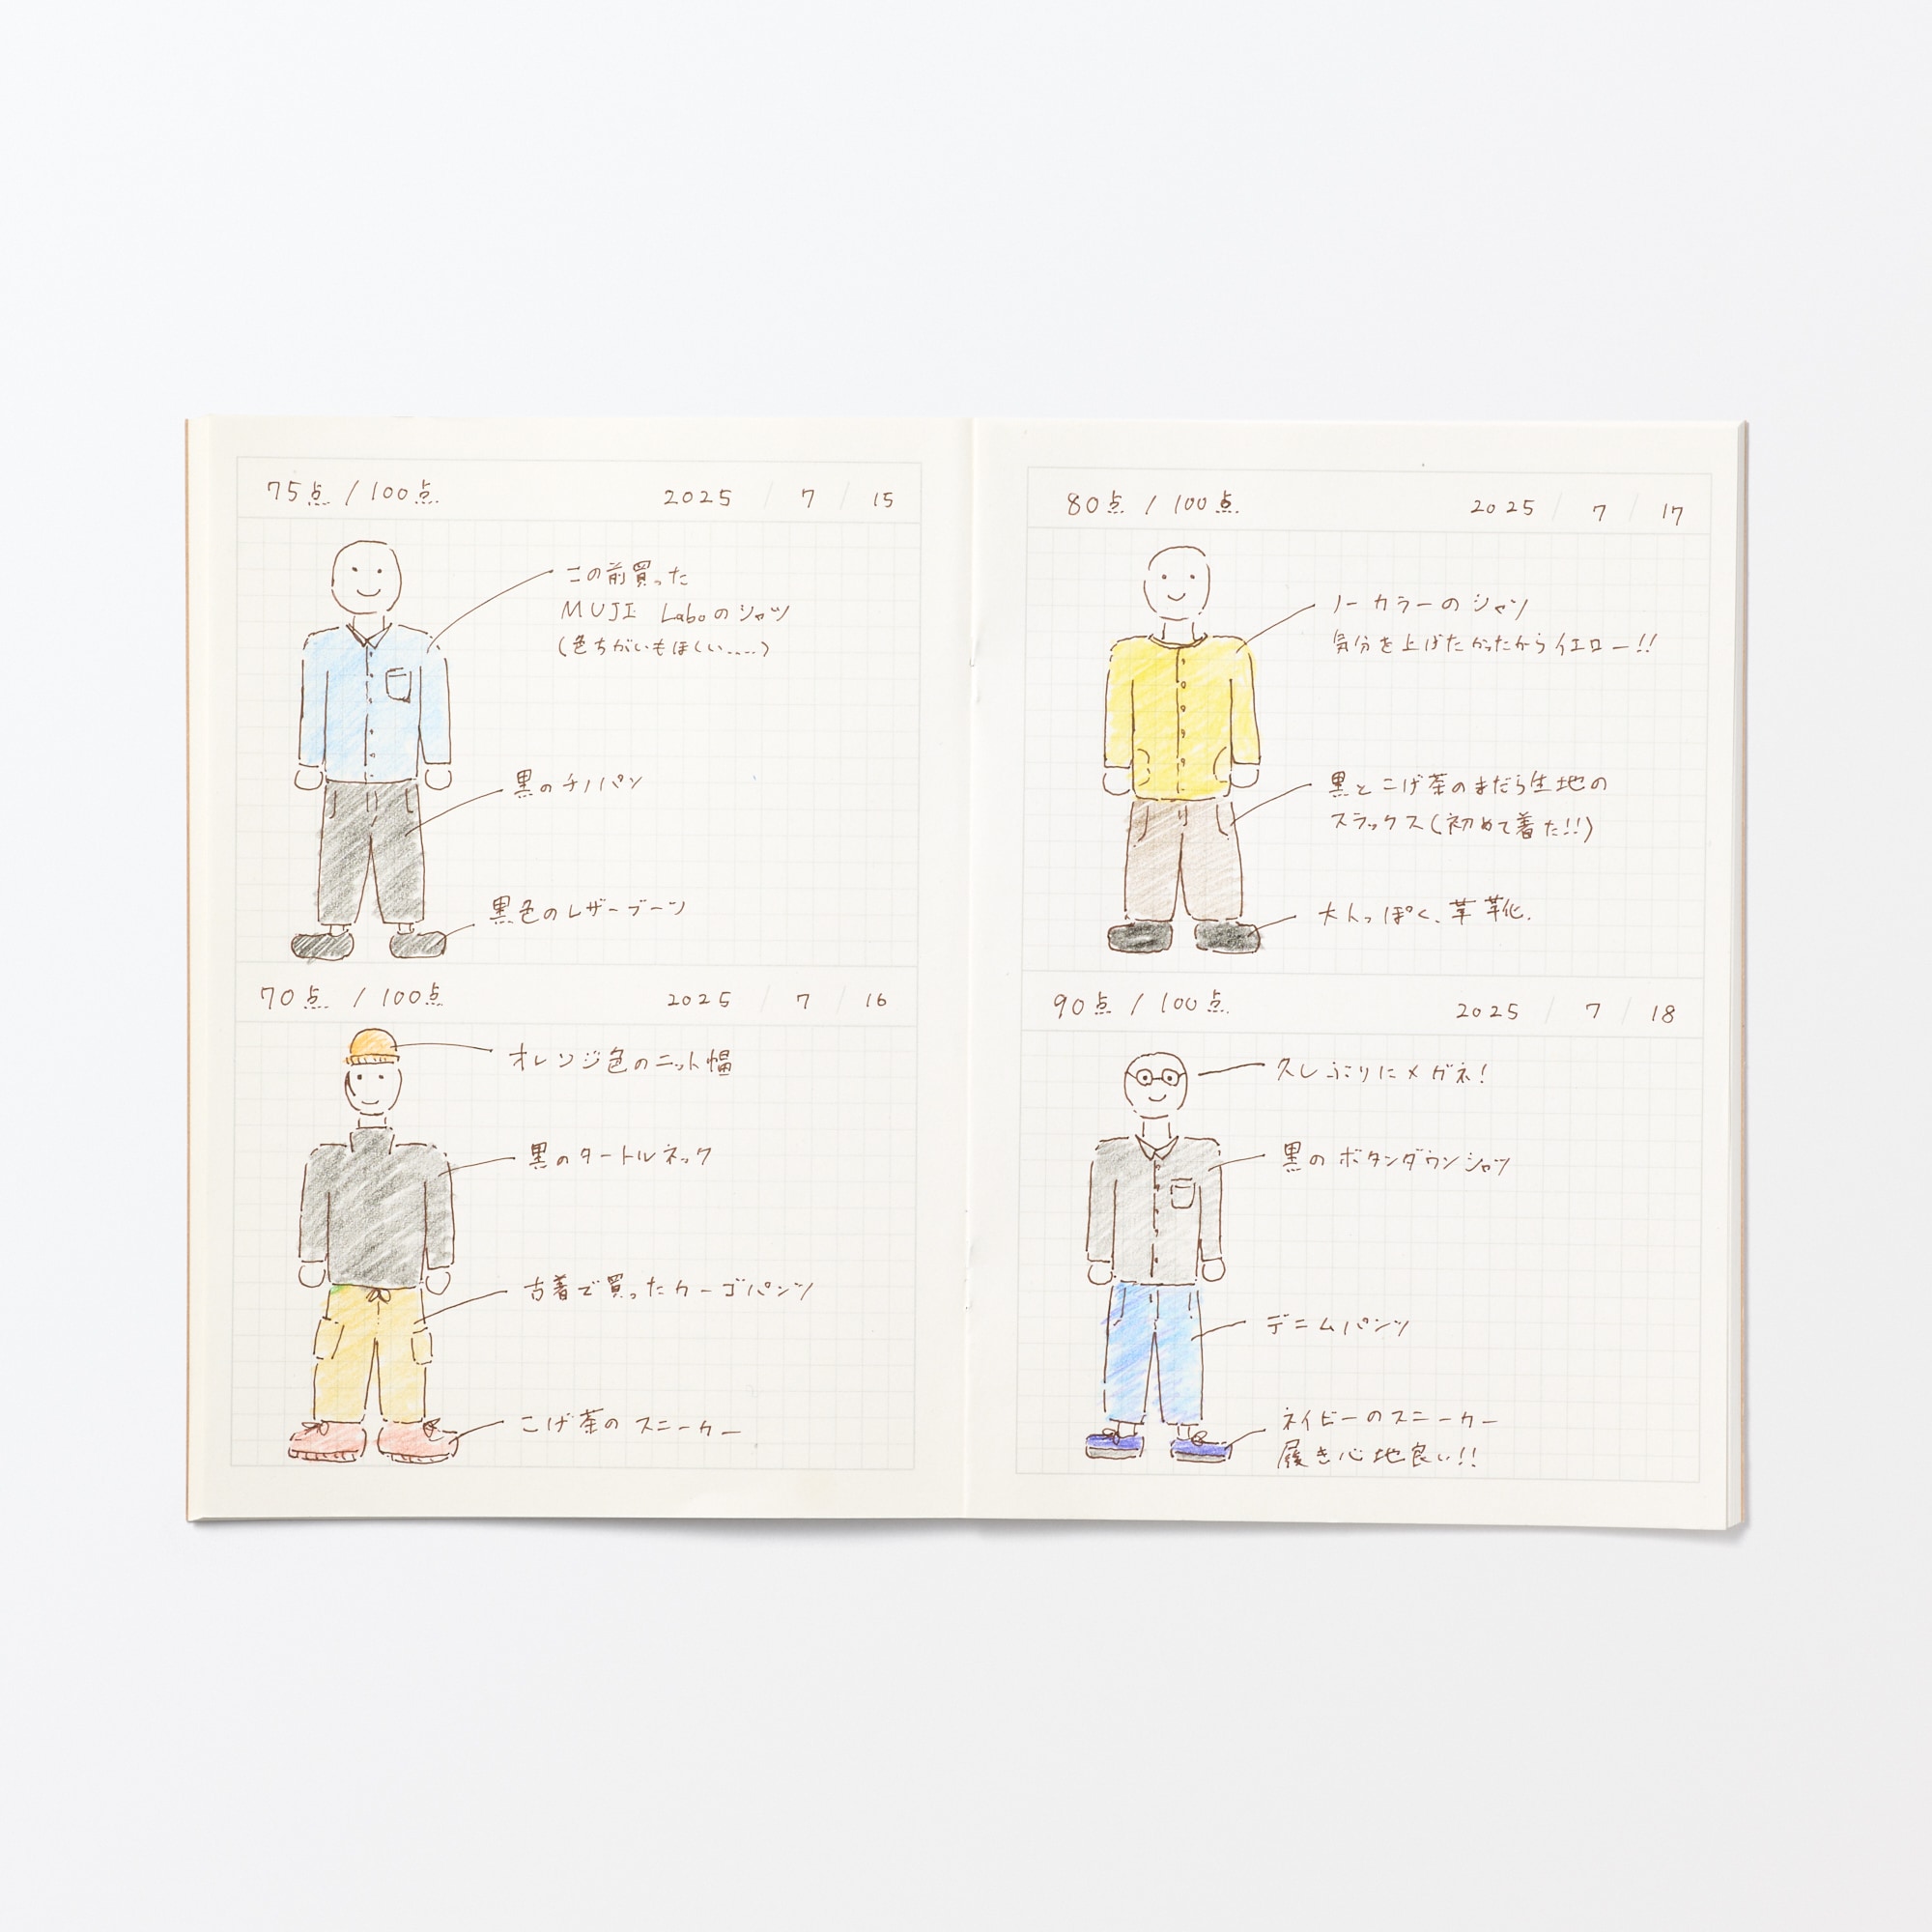 75点 / 100点
2025 / 7 / 15
この前買った
MUJI Laboのシャツ
(色ちがいもほしい.....)
黒のチノパン
黒色のレザーブーツ
70点 / 100点
2025 / 7 / 16
オレンジ色のニット帽
黒のタートルネック
古着で買ったカーゴパンツ
こげ茶のスニーカー
80点 / 100点
2025 / 7 / 17
ノーカラーのシャツ
気分を上げたかったからイエロー!!
黒とこげ茶のまだら生地の
スラックス(初めて着た!!)
大人っぽく、革靴.
90点 / 100点
2025 / 7 / 18
久しぶりにメガネ!
黒のボタンダウンシャツ
デニムパンツ
ネイビーのスニーカー
履き心地良い!!